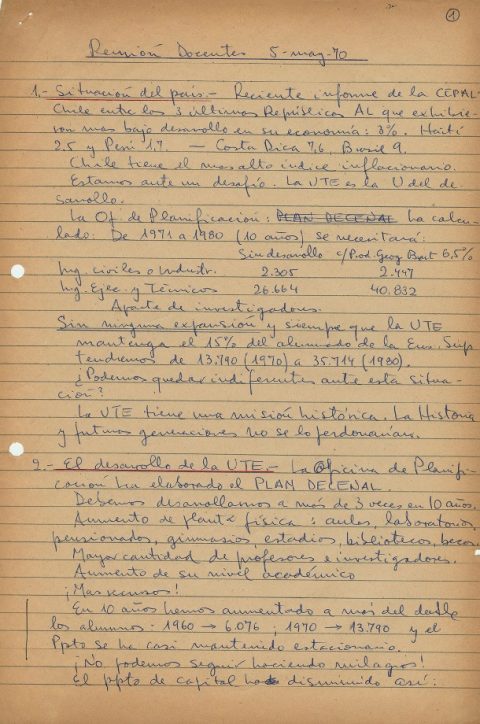 1
Reunión Docentes 5-may-70
1.- Situación del país.- Reciente informe de la CEPAL:
Chile entre las 3 últimas Repúblicas AL que exhibie-
ron mas bajo desarrollo en su economía: 3%. Haití
2.5 y Perú 1,7. — Costa Rica 7,6, Brasil 9.
Chile tiene el mas alto índice inflacionario.
Estamos ante un desafío. La UTE es la U del de
sarrollo.
La Of de Planificación: PLAN DECENAL ha calcu-
lado: De 1971 a 1980 (10 años) se necesitará:
Sin desarrollo c/Prod. Geog Brut 6,5%
Ing. Civiles o Industr. 2.305 2.447
Ing. Ejec. y Técnicos 26.664 40.832
Aparte de investigadores.
Sin ninguna expansión y siempre que la UTE
mantenga el 15% del alumnado de la Ens. Sup.
tendremos de 13.790 (1970) a 35.714 (1980).
¿Podemos quedar indiferentes ante esta situa-
ción?
La UTE tiene una misión histórica. La Historia
y futuras generaciones no se lo perdonarían.
2.- El desarrollo de la UTE.- La Oficina de Planifi-
cación ha elaborado el PLAN DECENAL
Debemos desarrollarnos a más de 3 veces en 10 años.
Aumento de planta física: aulas, laboratorios,
pensionados, gimnasios, estadios, bibliotecas, becas.
Mayor cantidad de profesores e investigadores.
Aumento de su nivel académico
¡Mas recursos!
En 10 años hemos aumentado a más del doble
los alumnos: 1960 → 6.076; 1970 → 13.790 y el
Ppto se ha casi mantenido estacionario.
¡No podemos seguir haciendo milagros!
El ppto de capital ha disminuido así: